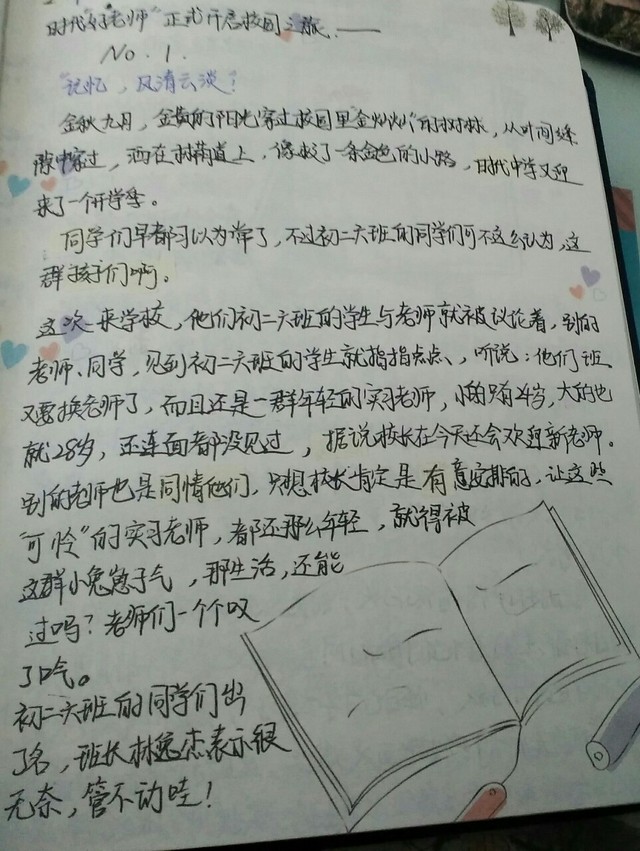 时代"幻老师"正式开启校园之旅.——
No.1.
"记忆，风清云淡？
金秋九月，金黄的阳光穿过校园里金灿灿的树林，从叶间缝
隙中穿过，洒在林荫道上，像披了一条金色的小路，时代中学又迎
来了一个开学季。
同学们早都习以为常了，不过初二六班的同学们可不这么认为，这
群孩子们啊。
这次一来学校，他们初二六班的学生与老师就被议论着，别的
老师、同学，见到初二六班的学生就指指点点、，听说：他们班
又要换老师了，而且还是一群年轻的实习老师，小的只有岁，大的也
就28岁，还连面都没见过，据说校长在今天还会欢迎新老师。
别的老师也是同情他们，只想校长肯定是有意安排的，让这些
"可怜"的实习老师，都还那么年轻，就得被
这群小兔崽子气，那生活，还能
过吗？老师们一个个叹
了口气。
初二六班的同学们出
了名，班长林逸杰表示很
无奈，管不动哇！